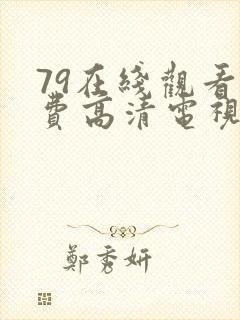 79在綫觀看
費高清電視
鄭秀妍